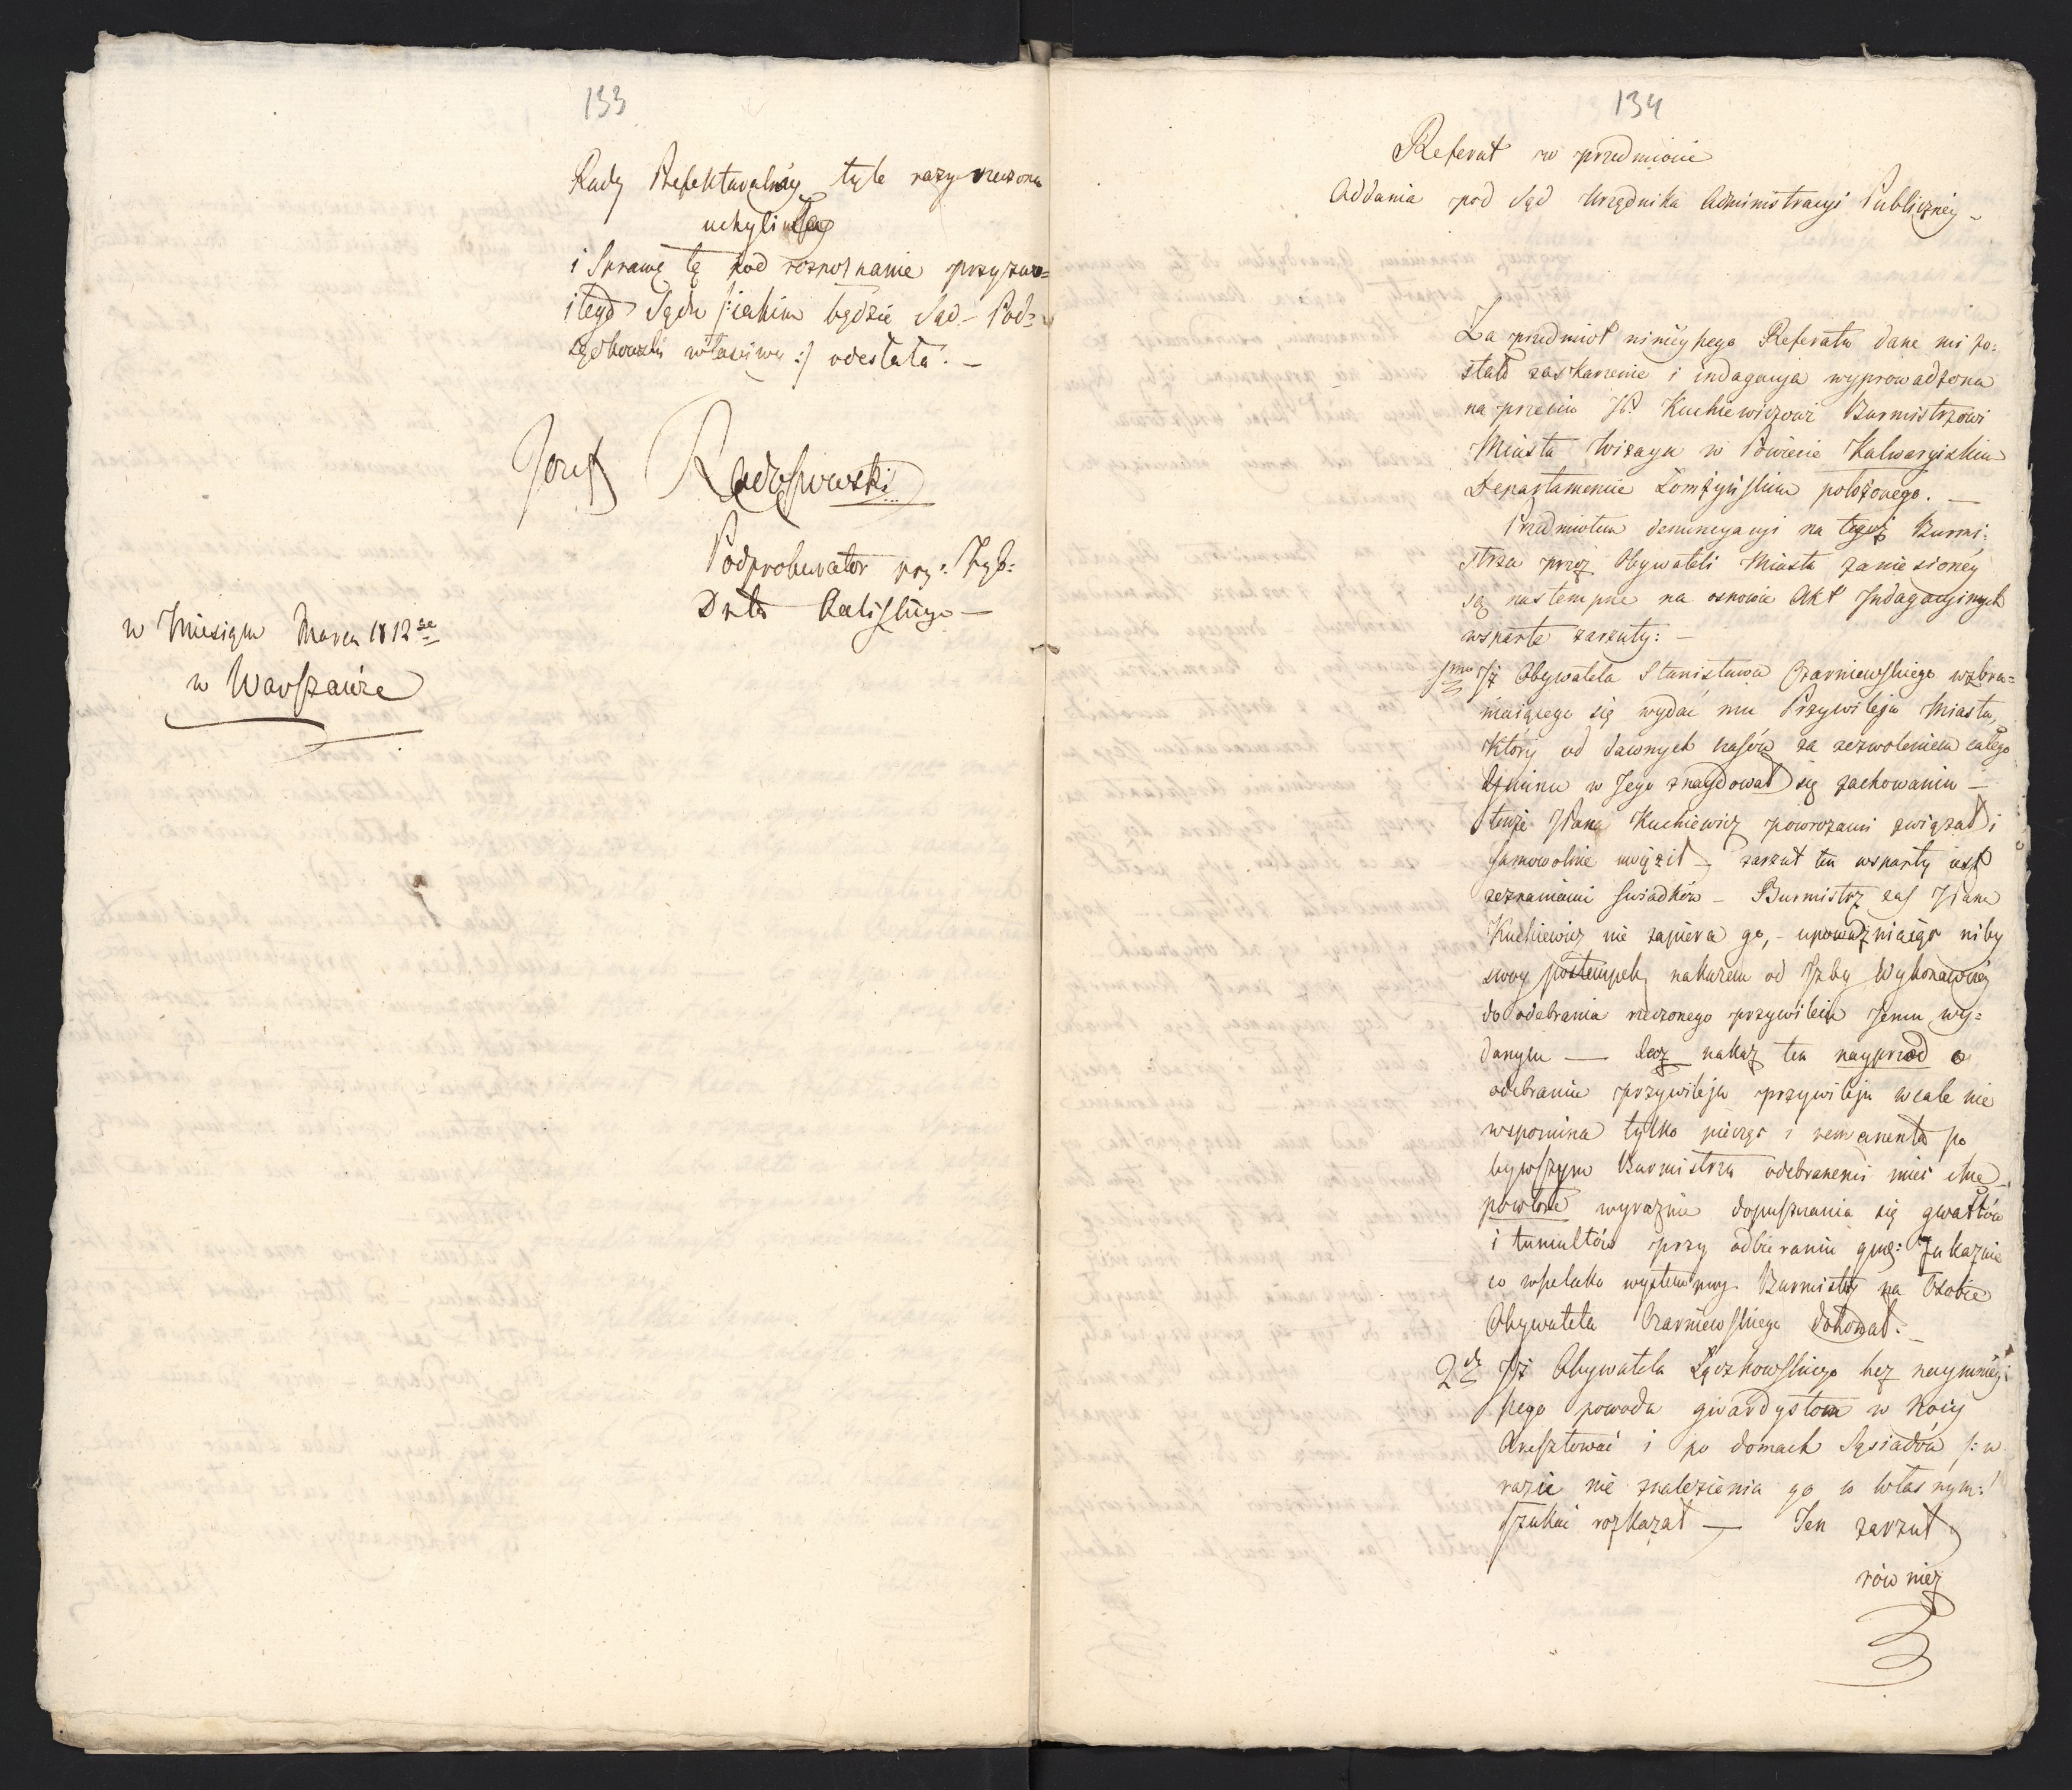 133
Rady Prefekturalnéy tyle razy rzeczona
uchyliła
i Sprawę tę pod rozpoznanie przyzwo=
itego Sądu /: iakim będzie Sąd Pod=
sędkowski właściwy :/ odesłała. –
Jozef Radoszewski
Podprokurator przy: Tryb:
Dptu Kaliskiego –
w Miesiącu Marcu 1812
w Warszawie
134
Referat w przedmiocie
Oddania pod Sąd Urzędnika Administracyi Publiczney –
Za przedmiot ninieyszego Referatu dane mi zo:
stało zaskarzenie i indagacya wyprowadzona
na przeciw JP. Kuchiewiczowi Burmistrzowi
Miasta Wizayn w Powiecie Kalwaryiskim
Departamencie Łomżyńskim położonego. –
Przedmiotem denuncyacyi na tegoż Burmi:
strza przez Obywateli Miasta zaniesioney
są nastempne na osnowie Akt Indagacyinych
wsparte zarzuty: –
1mo Iż Obywatela Stanisława Czarniewskiego wzbra=
niaiącego się wydać mu Przywileju Miasta,
który od dawnych czasów za zezwoleniem całego
Gminu w Jego znaydował się zachowaniu –
tenże JPana Kuchiewicz powrozami związał i
samowolnie uwięził – zarzut ten wsparty iest
zeznaniami swiadków – Burmistrz zaś JPana
Kuchiewicz nie zapiera go, – upoważniaiąc niby
swoy postempek nakazem od Izby Wykonawczéy
do odebrania rzeczonego przywileju Jemu wy=
danym — lecz nakaz ten nayprzód o
odebraniu przywileju przywileju wcale nie
wspomina tylko pieczęć i remanenta po
bywszym Burmistrzu odebranemi mieć chce –
powtóre wyraźnie dopuszczania się gwałtów
i tumultów przy odbieraniu
co wszelako Burmistrz na Osobie
Obywatela Czarniewskiego dokonał. –
2do Iż Obywatela Łączkowskiego bez naymniey:
szego powodu gwardystom w nocy
Aresztować i po domach Sąsiadów /: w
razie nie znalezienia go w własnym :/
szukać rozkazał — Ten zarzut
również